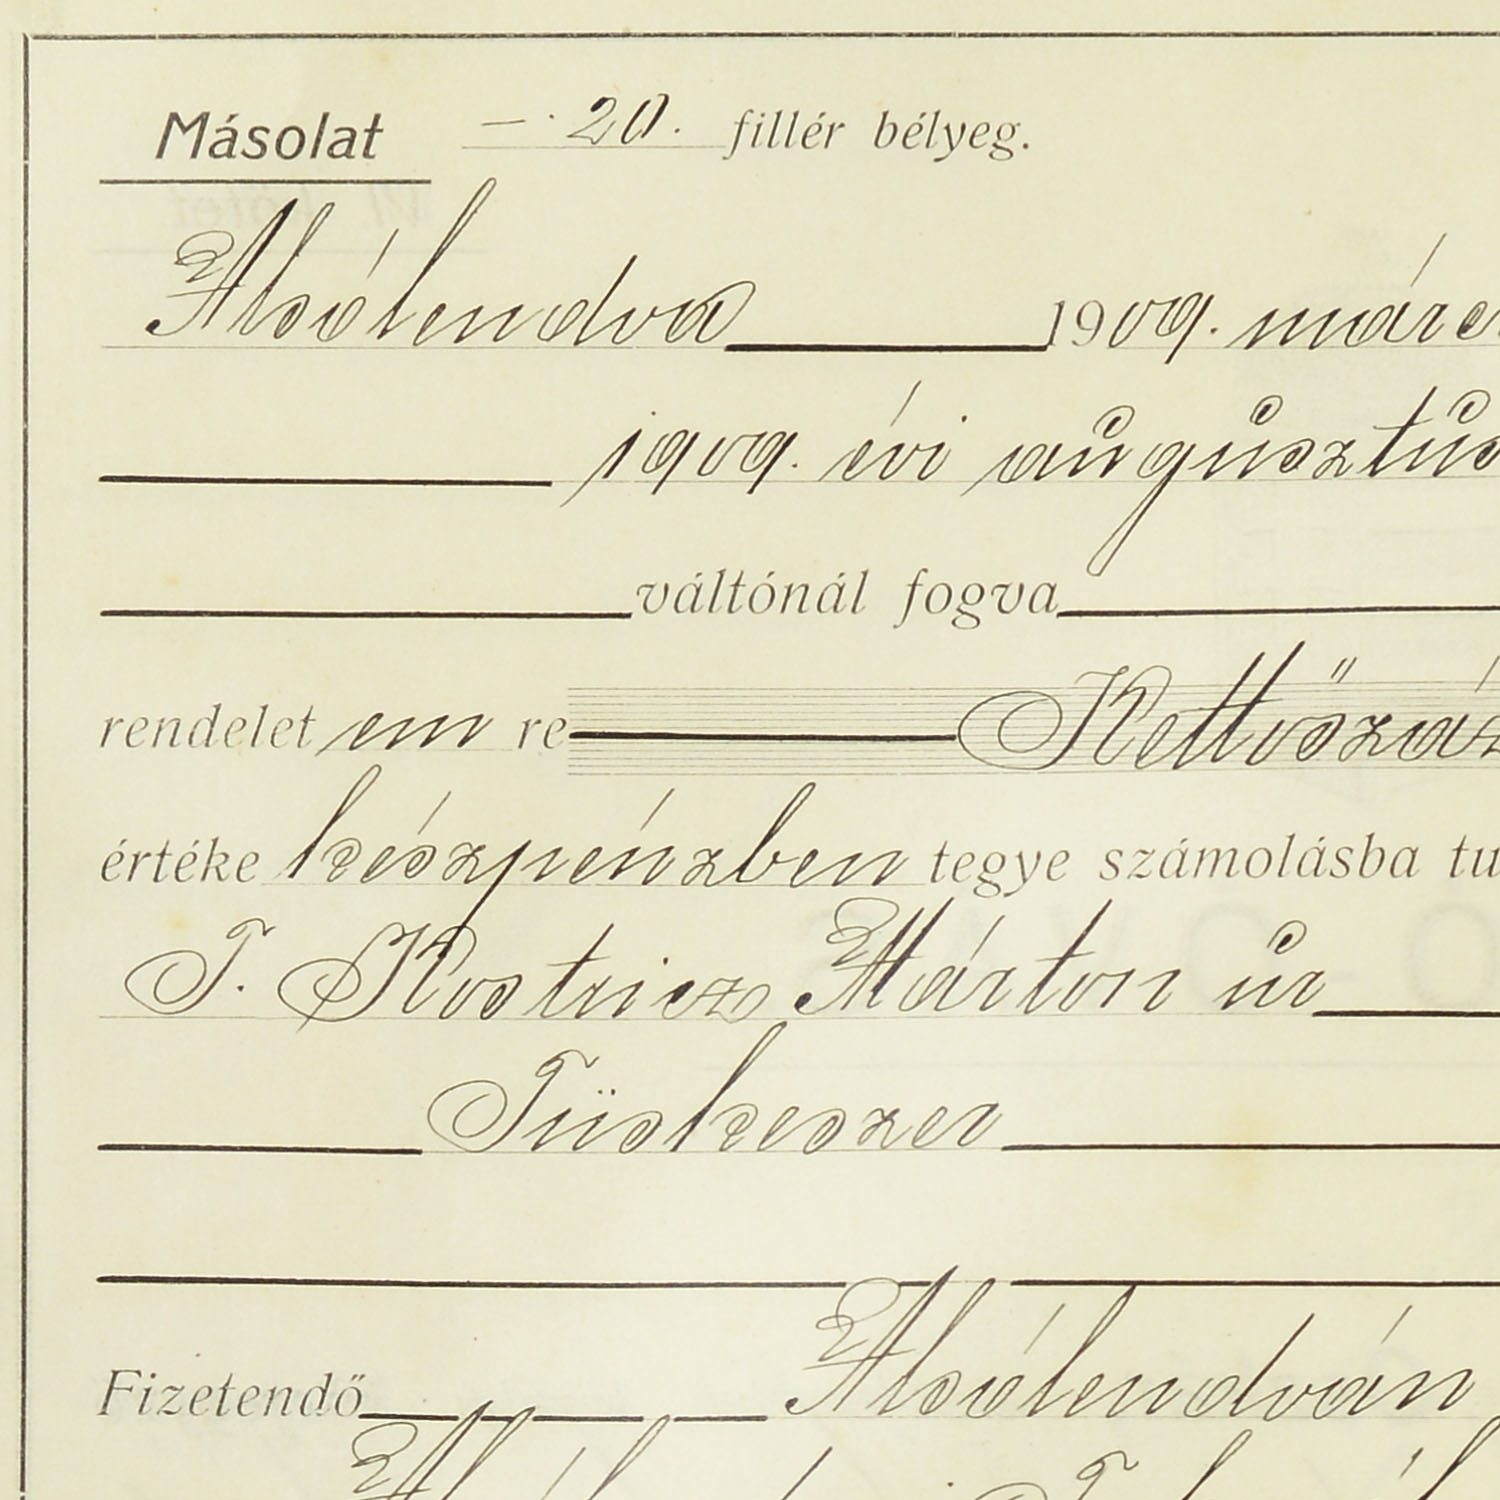 Másolat — 20. fillér bélyeg.
Alsólendva 1909. márc
1909. évi augusztus
váltónál fogva
rendelet em re Kettőszáz
értéke készpénzben tegye számolásba tu
T. Kostricz Márton úr
Tüskeszer
Fizetendő Alsólendván